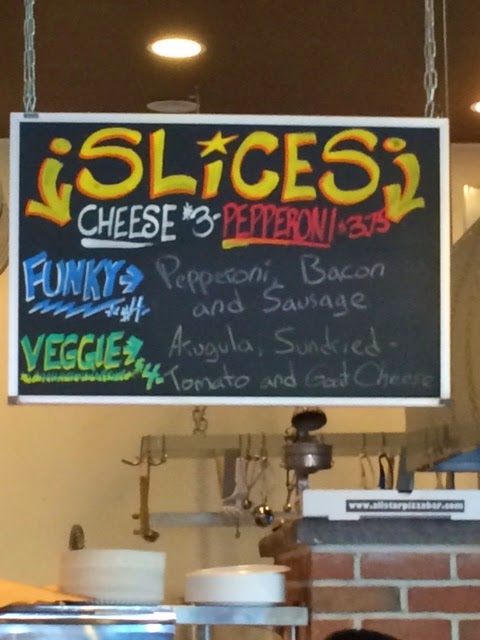 SLiCES
CHEESE $3- PEPPERONI $3.75
FUNKY Pepperoni, Bacon
$4- and Sausage
VEGGIE Arugula, Sundried-
$4- Tomato and Goat Cheese
www.allstarpizzabar.com